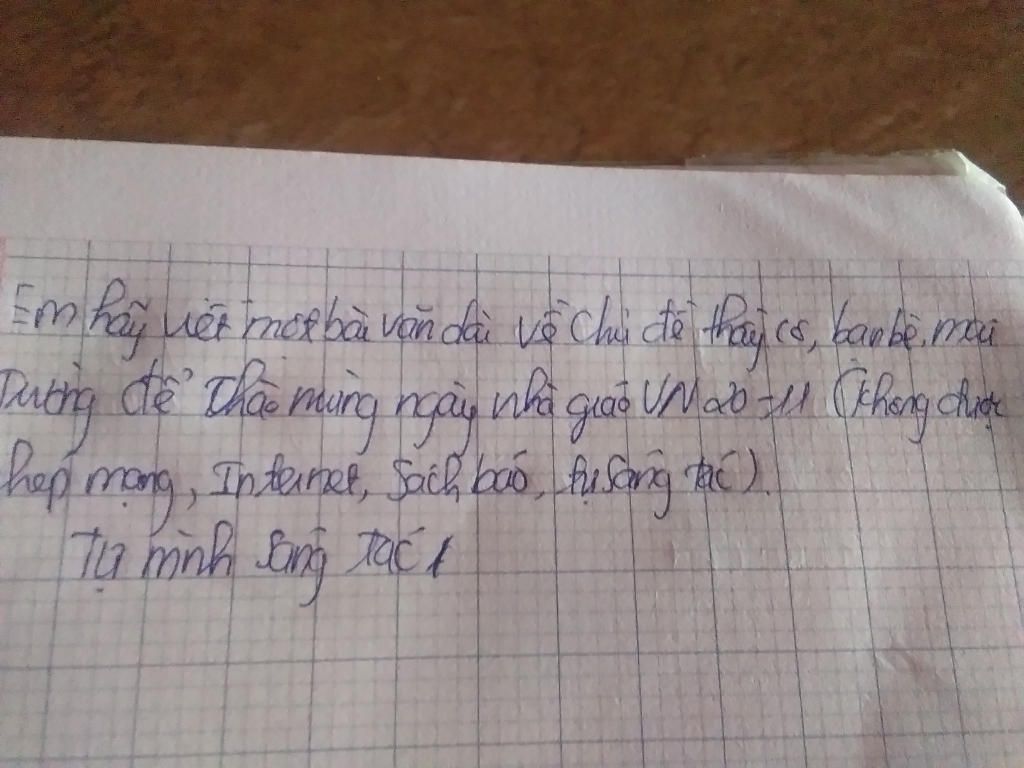 Em hãy viết một bài văn dài về chủ đề thầy cô, bạn bè, mái
trường để chào mừng ngày nhà giáo VN 20-11 (không được
chép mạng, Internet, sách báo, tự sáng tác).
Tự mình sáng tác